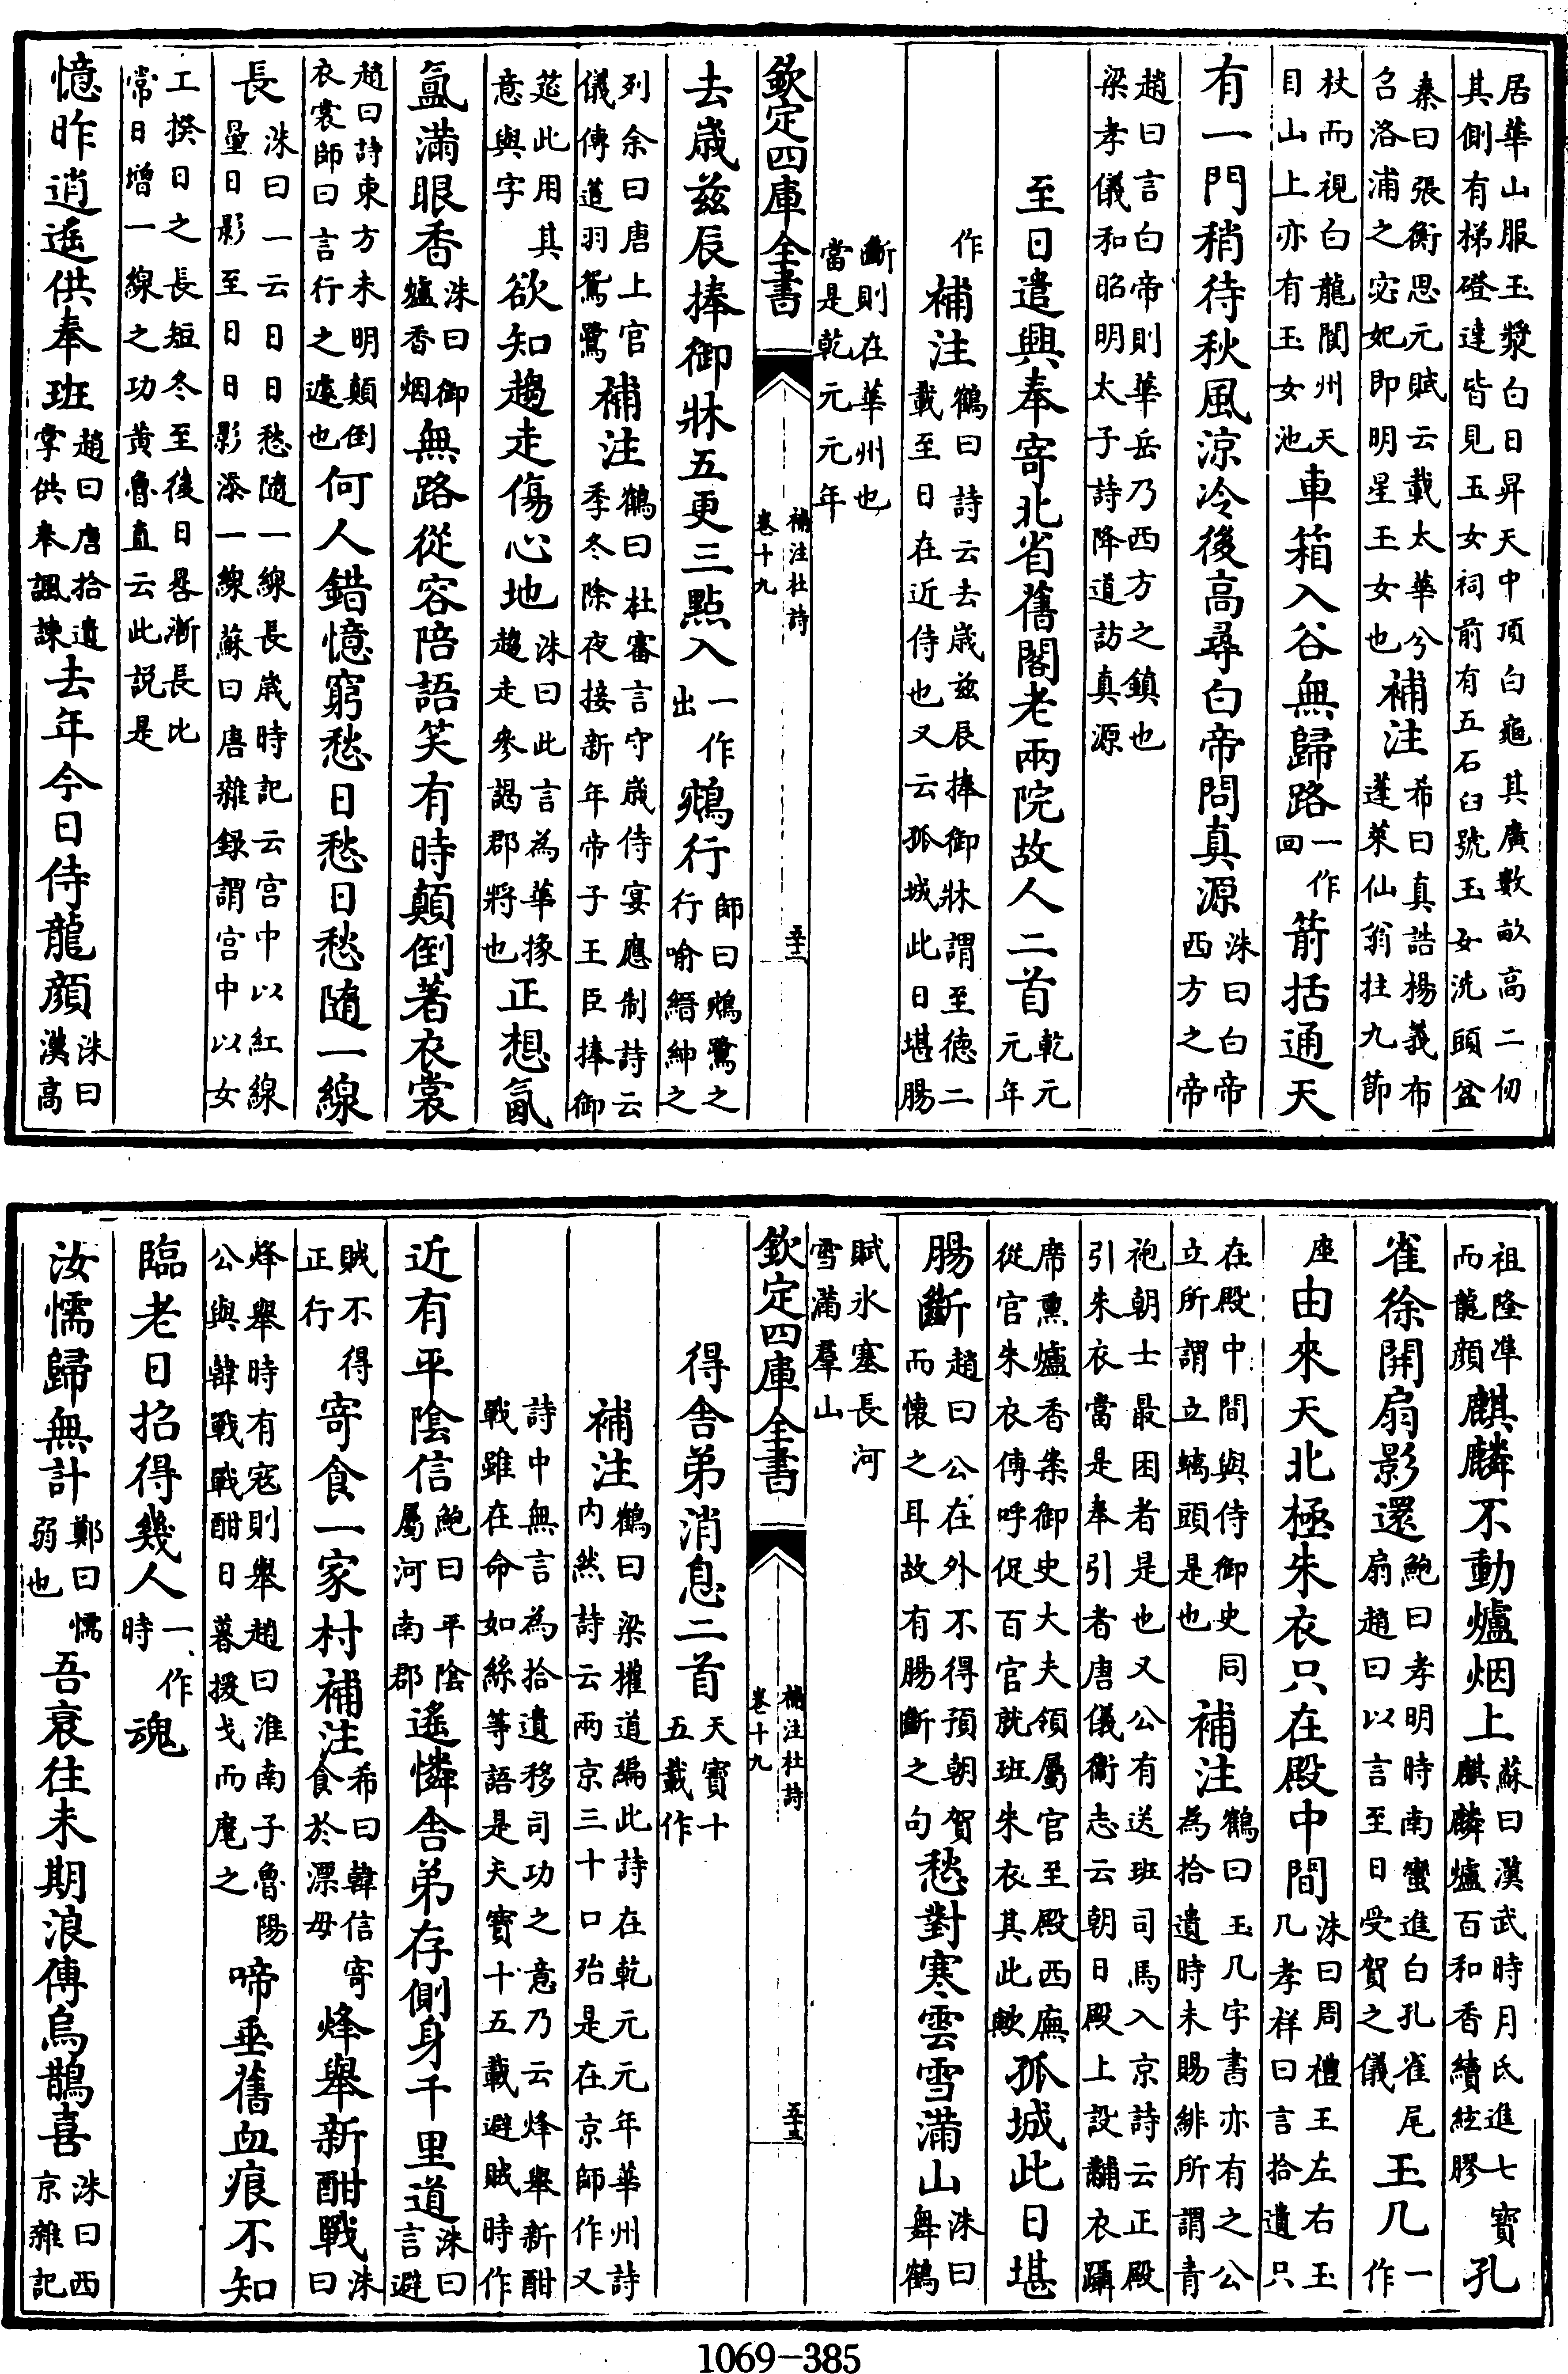 居華山服玉漿白日昇天中頂白龜其廣數畝高二仞
其側有梯磴達皆見玉女祠前有五石臼號玉女洗頭盆
秦曰張衡思元賦云載太華兮
召洛浦之宓妃即明星玉女也補注希曰真誥楊羲布
蓬萊仙翁拄九節
杖而視白龍閬州天
目山上亦有玉女池車箱入谷無歸路一作
回箭括通天
有一門稍待秋風涼冷後高尋白帝問真源洙曰白帝
西方之帝
趙曰言白帝則華岳乃西方之鎮也
梁孝儀和昭明太子詩降道訪真源
至日遣興奉寄北省舊閣老兩院故人二首乾元
元年
作補注鶴曰詩云去歲兹辰捧御牀謂至德二
載至日在近侍也又云孤城此日堪腸
斷則在華州也
當是乾元元年
欽定四庫全書
補注杜詩
卷十九
五十二
去歲兹辰捧御牀五更三點入一作
出鵷行師曰鵷鷺之
行喻縉紳之
列余曰唐上官
儀傳蓬羽鴛鷺補注鶴曰杜審言守歲侍宴應制詩云
季冬除夜接新年帝子王臣捧御
莚此用其
意與字欲知趨走傷心地洙曰此言為華掾
趨走參謁郡將也正想氤
氳滿眼香洙曰御
爐香烟無路從容陪語笑有時顛倒著衣裳
趙曰詩東方未明顛倒
衣裳師曰言行之遽也何人錯憶窮愁日愁日愁隨一線
長洙曰一云日日愁隨一線長歲時記云宮中以紅線
量日影至日日影添一線蘇曰唐雜録謂宮中以女
工揆日之長短冬至後日晷漸長比
常日增一線之功黄魯直云此説是
憶昨逍遥供奉班趙曰唐拾遺
掌供奉諷諫去年今日侍龍顔洙曰
漢高
祖隆凖
而龍顔麒麟不動爐烟上蘇曰漢武時月氏進七寶
麒麟爐百和香續絃膠孔
雀徐開扇影還鮑曰孝明時南蠻進白孔雀尾
扇趙曰以言至日受賀之儀玉几一
作
座由來天北極朱衣只在殿中間洙曰周禮王左右玉
几孝祥曰言拾遺只
在殿中間與侍御史同
立所謂立螭頭是也補注鶴曰玉几字書亦有之公
為拾遺時未賜緋所謂青
袍朝士最困者是也又公有送班司馬入京詩云正殿
引朱衣當是奉引者唐儀衞志云朝日殿上設黼衣躡
席熏爐香案御史大夫領屬官至殿西廡
從官朱衣傳呼促百官就班朱衣其此歟孤城此日堪
腸斷趙曰公在外不得預朝賀
而懷之耳故有腸斷之句愁對寒雲雪滿山洙曰
舞鶴
賦氷塞長河
雪滿羣山
欽定四庫全書
補注杜詩
卷十九
五十三
得舍弟消息二首天寶十
五載作
補注鶴曰梁權道編此詩在乾元元年華州詩
内然詩云兩京三十口殆是在京師作又
詩中無言為拾遺移司功之意乃云烽舉新酣
戰雖在命如絲等語是天寶十五載避賊時作
近有平陰信鮑曰平陰
屬河南郡遥憐舍弟存側身千里道洙曰
言避
賊不得
正行寄食一家村補注希曰韓信寄
食於漂母烽舉新酣戰洙
曰
烽舉時有寇則舉趙曰淮南子魯陽
公與韓戰戰酣日暮援戈而麾之啼垂舊血痕不知
臨老日招得幾人一作
時魂
汝懦歸無計鄭曰懦
弱也吾衰往未期浪傳烏鵲喜洙曰西
京雜記
1069-385